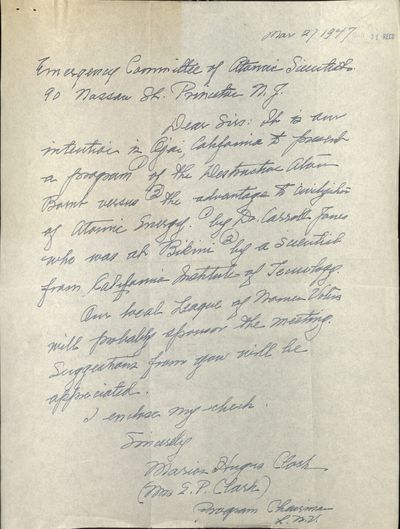 Mar 27 1947
31 REC'D
Emergency Committee of Atomic Scientists
90 Nassau St. Princeton N.J.
Dear Sirs: It is our
intention in Ojai California to present
a program (1) of the Destructive Atom
Bomb versus (2) the advantage to civilization
of Atomic Energy. (1) by Dr. Carroll Jones
who was at Bikini (2) by a scientist
from California Institute of Tecnology.
Our local League of Women Voters
will probably sponsor the meeting.
Suggestions from you will be
appreciated.
I enclose my check.
Sincerely
Marion Clark
(Mrs E. P. Clark)
Program Chairman
L.W.V.